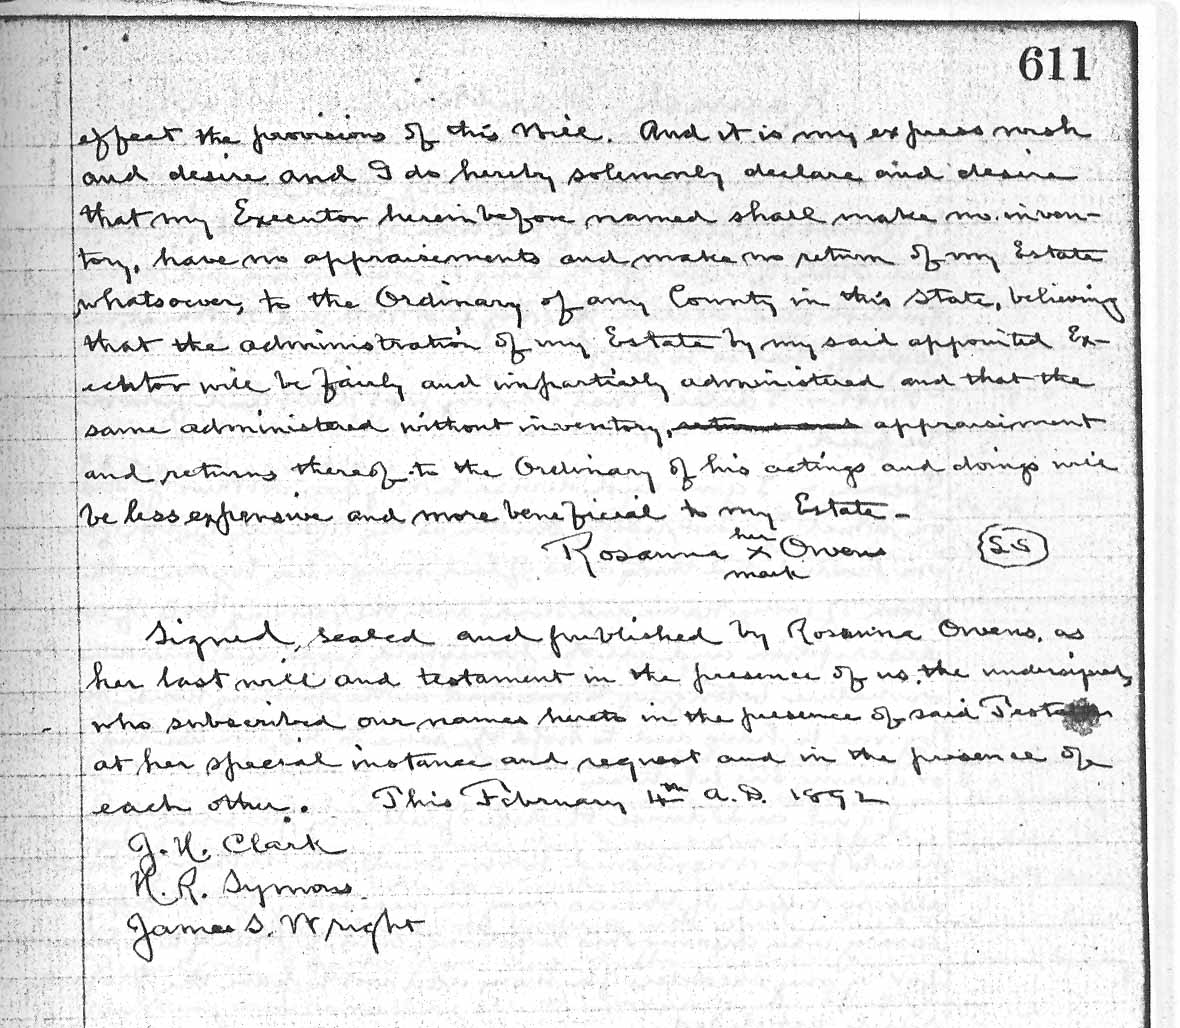 611
effect the provisions of this Will. And it is my express wish
and desire and I do hereby solemnly declare and desire
that my Executor hereinbefore named shall make no inven-
tory, have no appraisements and make no return of my Estate
whatsoever, to the Ordinary of any County in this State, believing
that the administration of my Estate by my said appointed Ex-
ecutor will be fairly and impartially administered and that the
same administered without inventory, returns and appraisiment
and returns thereof to the Ordinary of his actings and doings will
be less expensive and more beneficial to my Estate -
her
Rosanna X Owens (L S)
mark
Signed, sealed and published by Rosanna Owens, as
her last will and testament in the presence of us, the undersigned,
who subscribed our names hereto in the presence of said
at her special instance and request and in the presence of
each other. This February 4th A.D. 1892
J. H. Clark
H. R. Symons
James S. Wright